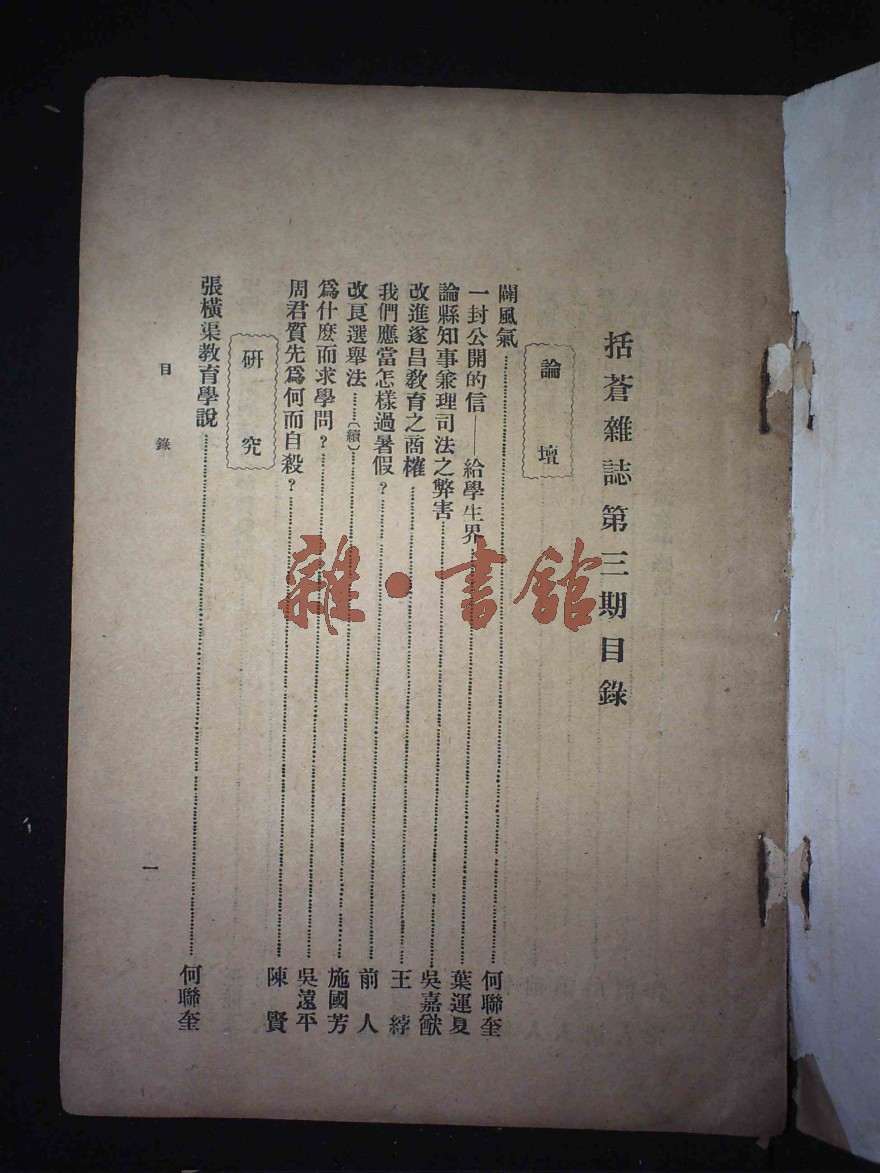 括蒼雜誌第三期目錄
論壇
闢風氣……何聯奎
一封公開的信——給學生界……葉運夏
論縣知事兼理司法之弊害……吳嘉猷
改進遂昌教育之商榷……王綍
我們應當怎樣過暑假?……前人
改良選舉法……(續)……施國芳
爲什麽而求學問?……吳遠平
周君質先爲何而自殺?……陳賢
研究
張橫渠教育學說……何聯奎
目錄
一
雜·書館